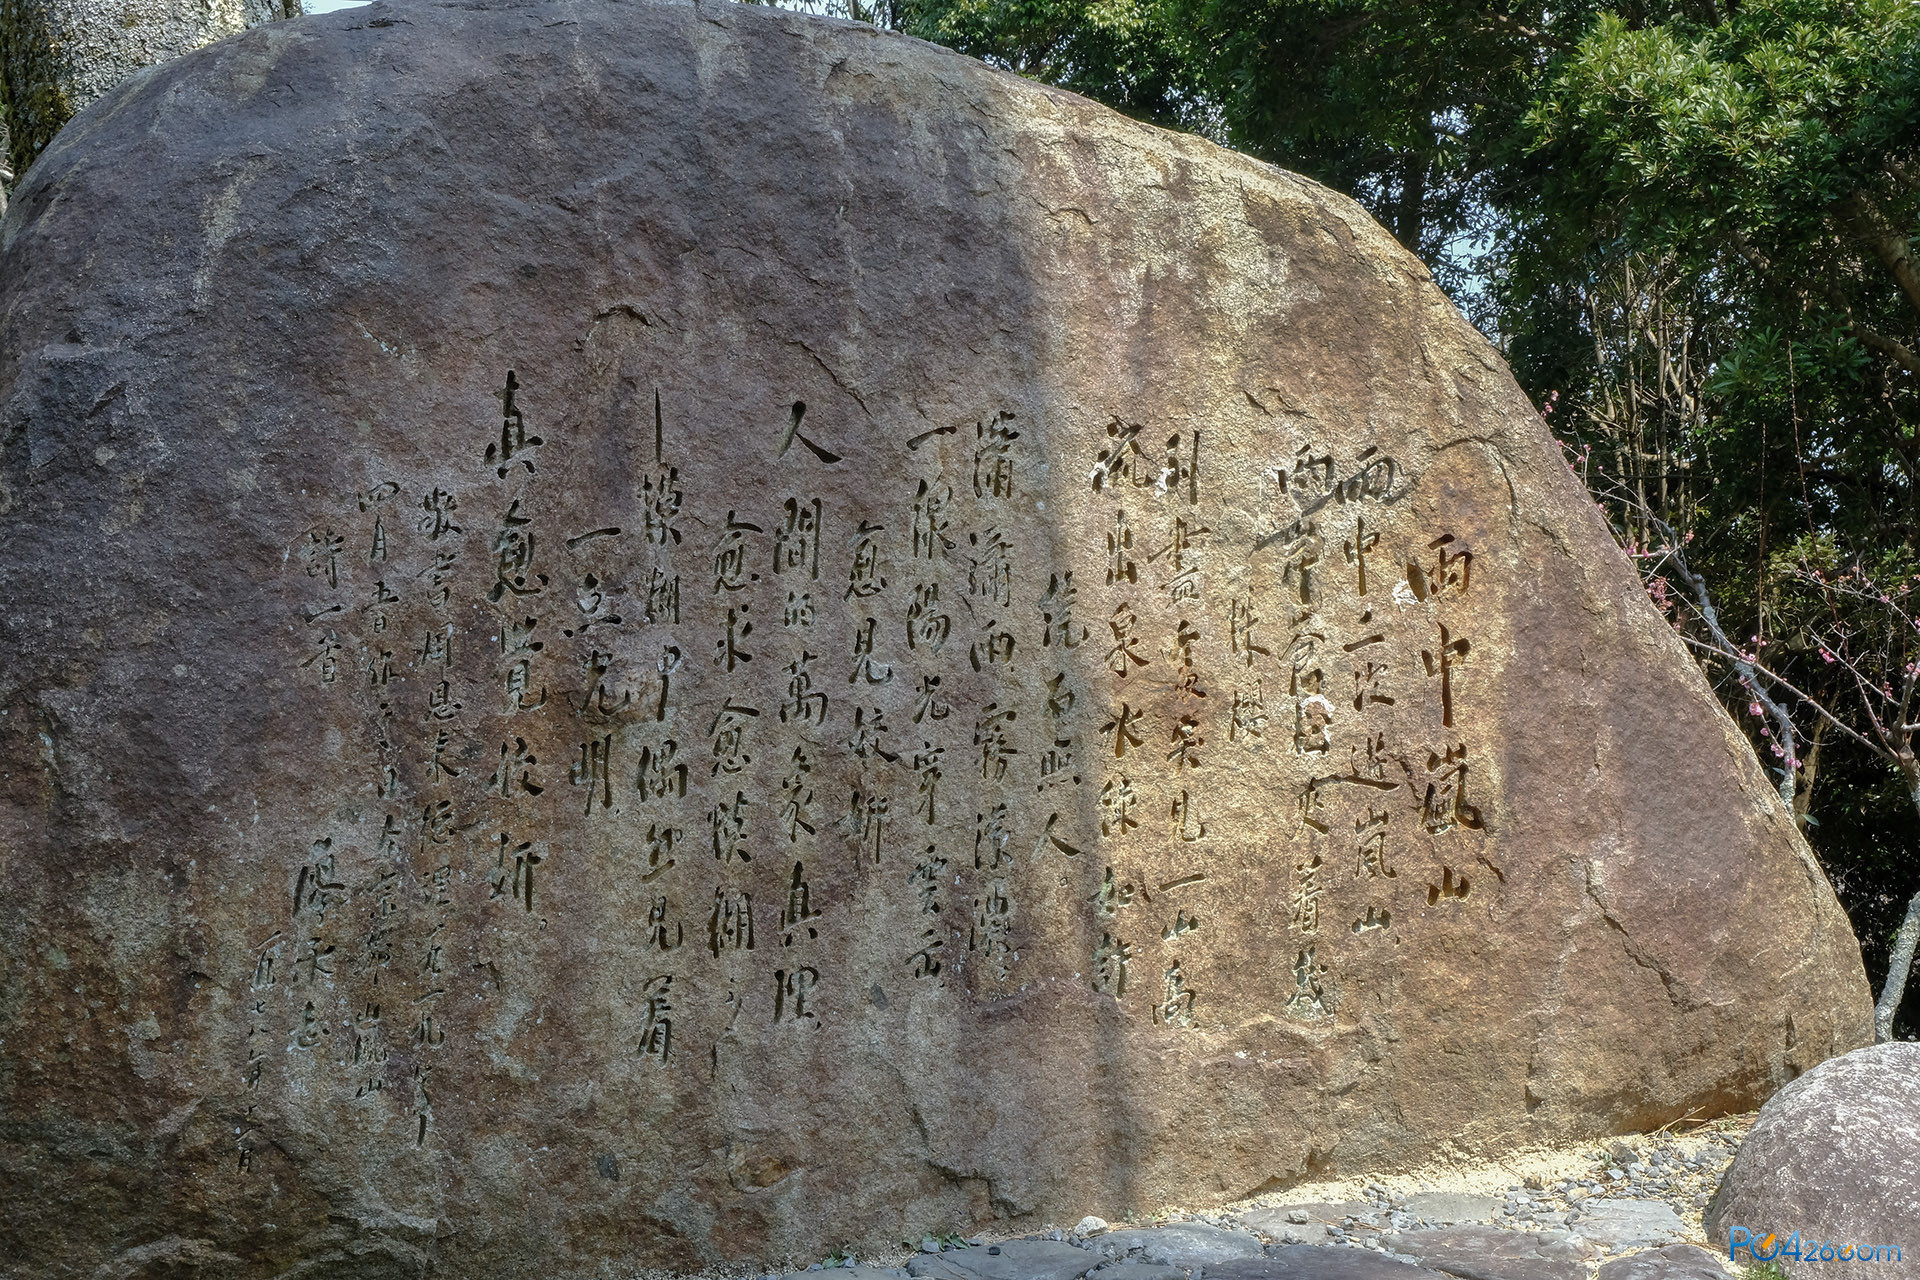 雨中嵐山
雨中二次遊嵐山、
兩岸蒼松夾着幾
株櫻
到盡處突見一山高
流出泉水綠如許
繞石照人。
瀟瀟雨霧濛濃、
一線陽光穿雲出
愈見姣姸
人間的萬象真理、
愈求愈模糊、
—模糊中偶然見着
一点光明、
真愈覺姣姸、
敬書周恩来总理一九一九年
四月五日作于日本京都嵐山
詩一首
廖承志
一九七八年十一月
PC426.com